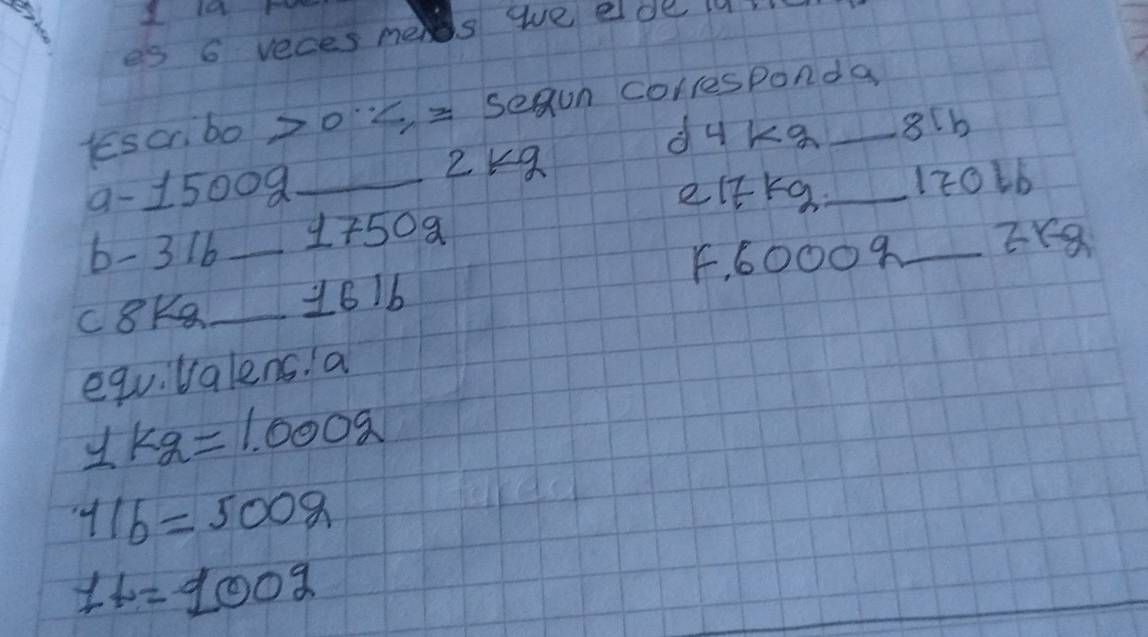 es 6 veces menos que el de la
Escribo > o <, = segun corresponda
a-1500g____ 2 kg
b-3lb___ 1750g
c 8Kg___ 16lb
d 4 kg___8lb
e 17kg.___170lb
F.6000g___ 7kg
equivalensia
1 kg=1.000g
1lb=500g
1t=100g